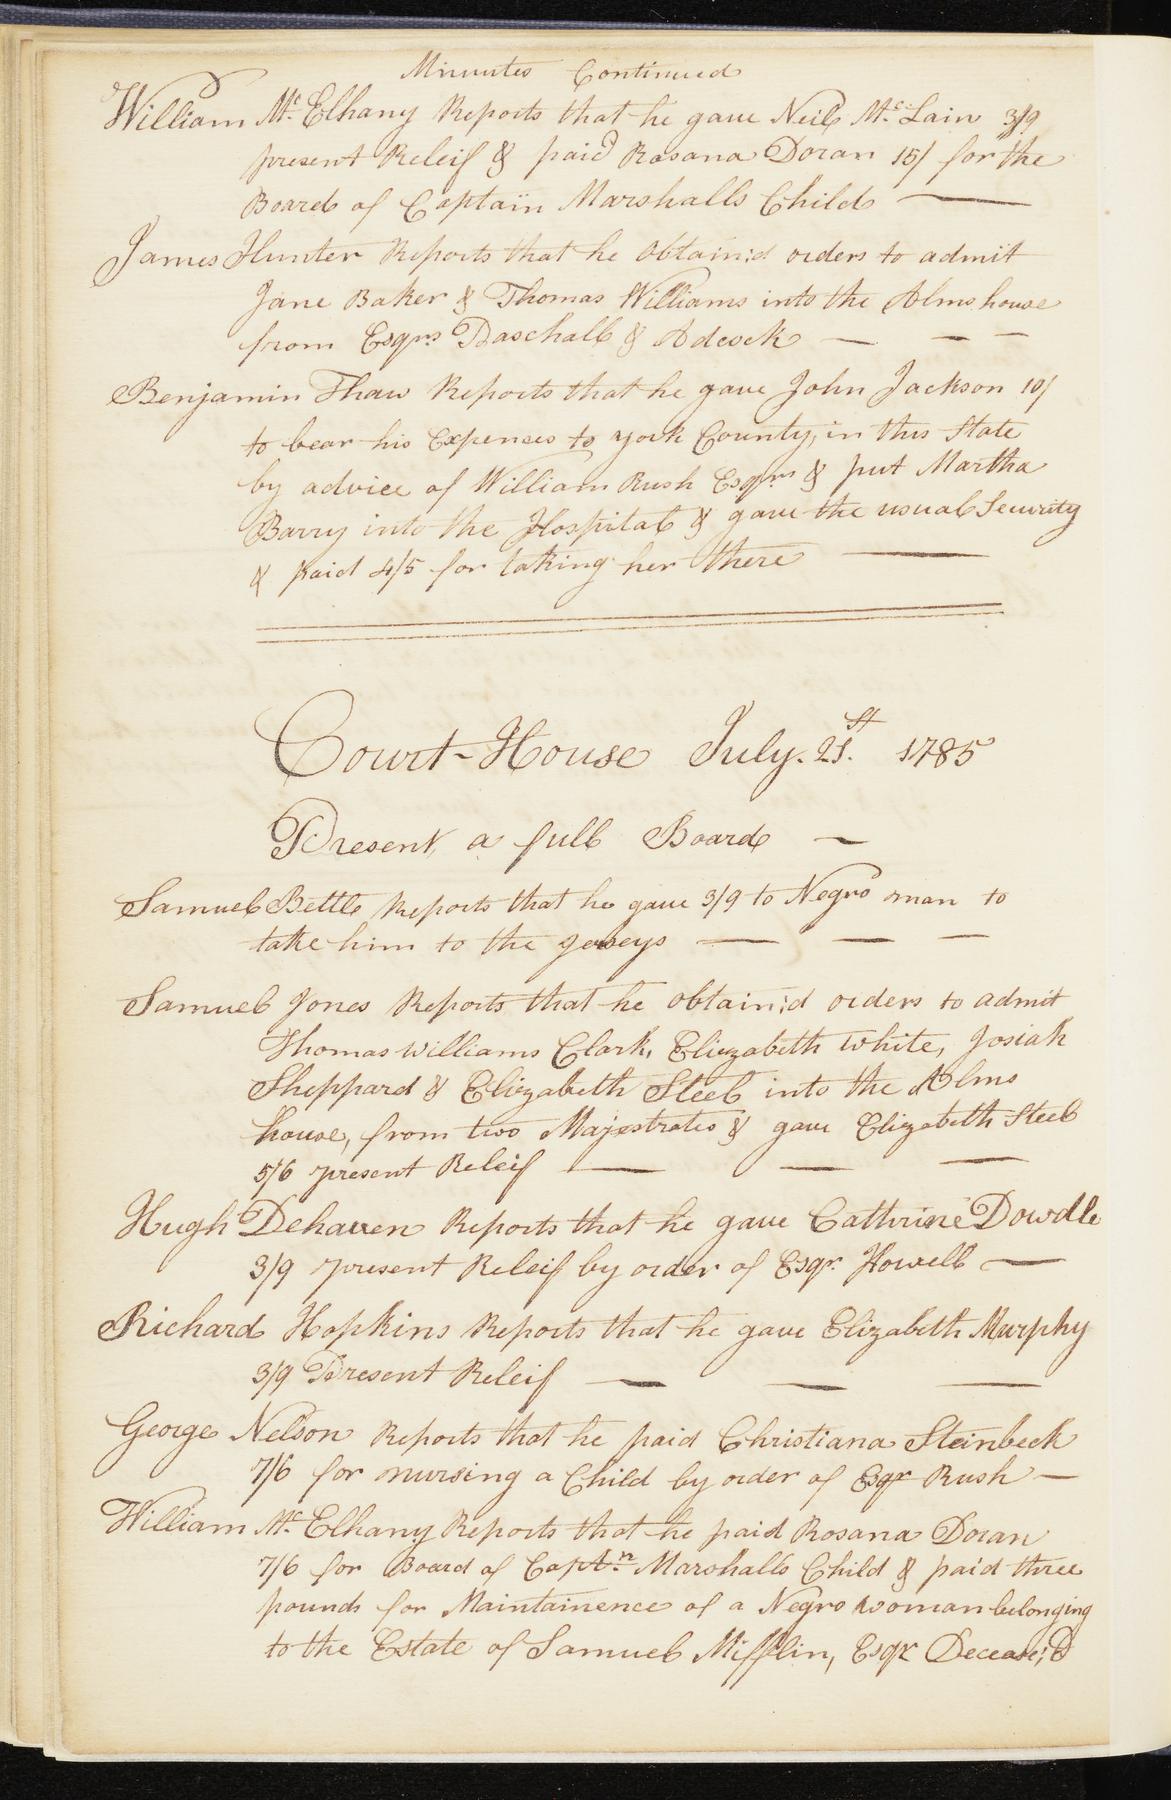 Minutes Continued
William Mc. Elhany Reports that he gave Neil Mc. Lain 3/9
present Releif & paid Rosana Doran 15/ for the
Board of Captain Marshalls Child
James Hunter Reports that he obtain'd orders to admit
Jane Baker & Thomas Williams into the Alms house
from Esqrs Paschall & Adcock
Benjamin Thaw Reports that he gave John Jackson 10/
to bear his Expences to york County, in this State
by advice of William Rush Esqrs & put Martha
Barry into the Hospital & gave the usual Security
& paid 4/5 for taking her there
Court-House July. 21.st 1785
Present, a full Board
Samuel Bettle Reports that he gave 3/9 to Negro man to
take him to the jerseys
Samuel Jones Reports that he obtain'd orders to admit
Thomas Williams Clark, Elizabeth White, Josiah
Sheppard & Elizabeth Steel into the Alms
house, from two Majestrates & gave Elizabeth Steel
5/6 present Releif
Hugh Dehaven Reports that he gave Cathrine Dowdle
3/9 present Releif by order of Esqr. Howell
Richard Hopkins Reports that he gave Elizabeth Murphy
3/9 Present Releif
George Nelson Reports that he paid Christiana Steinbeck
7/6 for nursing a Child by order of Esqr Rush
William Mc. Elhany Reports that he paid Rosana Doran
7/6 for Board of Captn. Marshalls Child & paid three
pounds for Maintainence of a Negro woman belonging
to the Estate of Samuel Mifflin, Esqr Decease'd